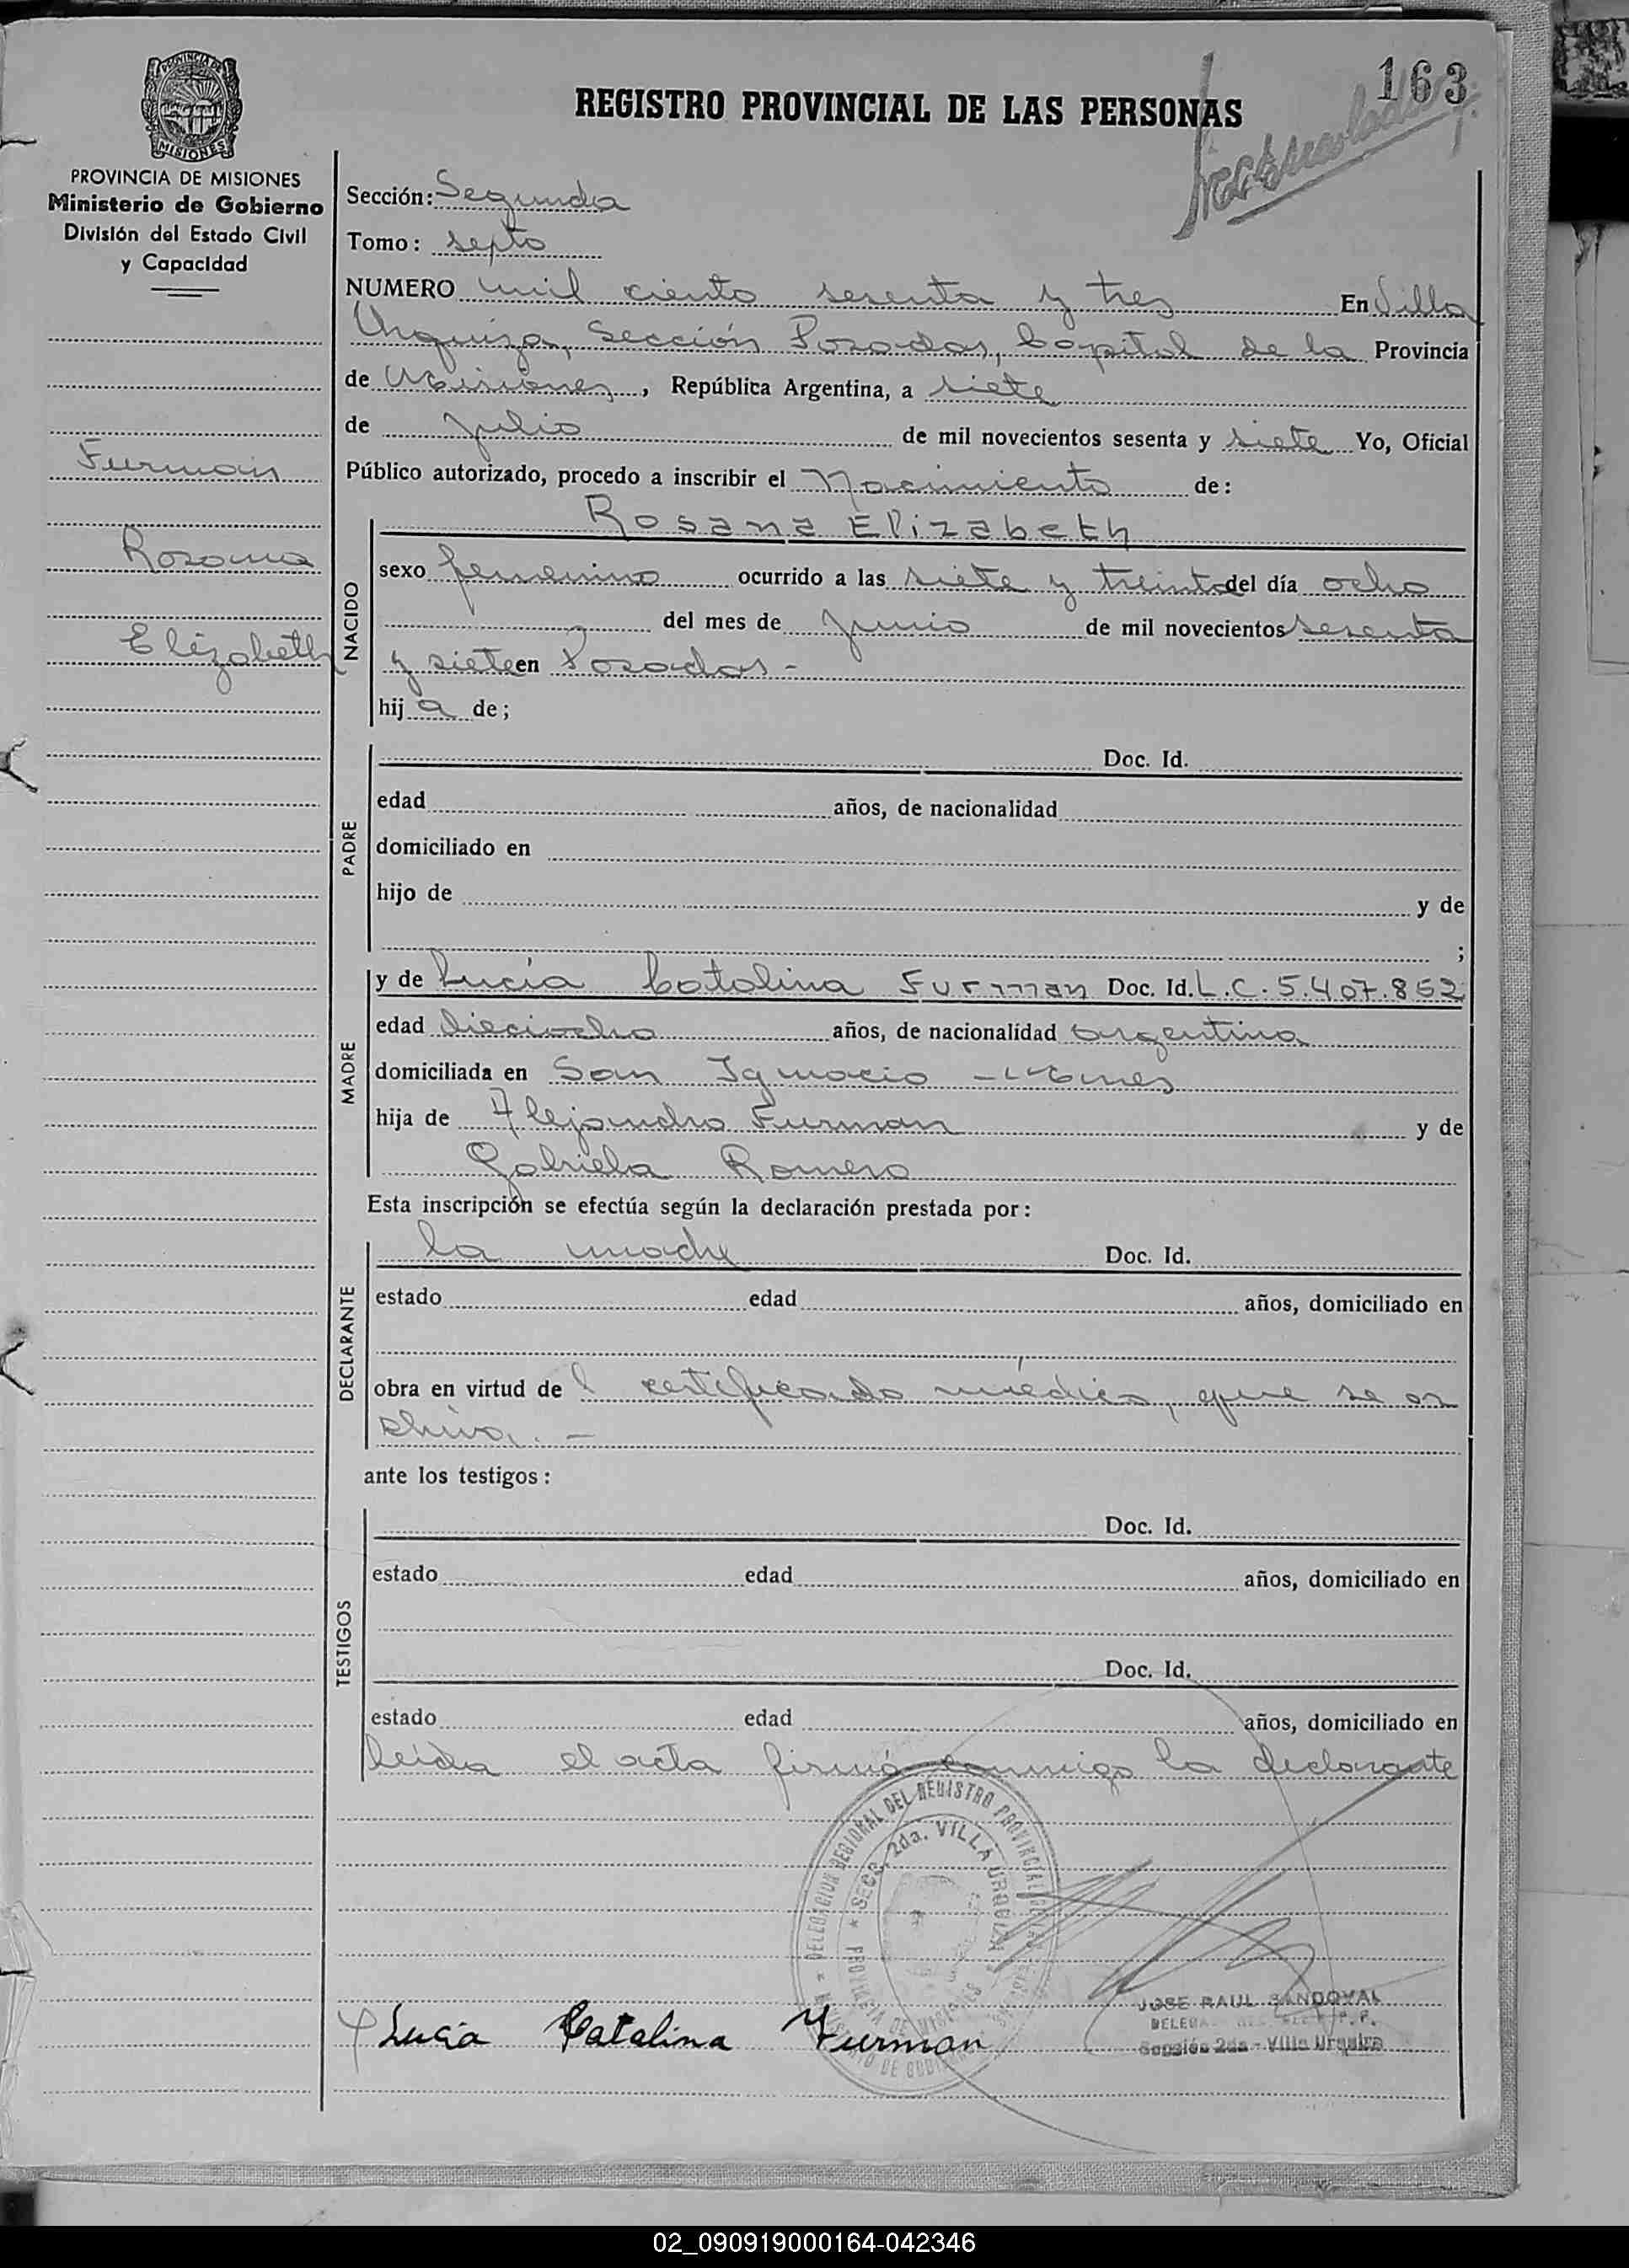 163
REGISTRO PROVINCIAL DE LAS PERSONAS
PROVINCIA DE
MISIONES
PROVINCIA DE MISIONES
Ministerio de Gobierno
División del Estado Civil
y Capacidad
Furman
Rosana
Elizabeth
Sección: Segunda
Tomo: septo
NUMERO mil ciento sesenta y tres En Villa
Urquiza, Sección Posadas, Capital de la Provincia
de Misiones, República Argentina, a siete
de julio de mil novecientos sesenta y siete Yo, Oficial
Público autorizado, procedo a inscribir el Nacimiento de:
NACIDO
Rosana Elizabeth
sexo femenino ocurrido a las siete y treinta del día ocho
del mes de Junio de mil novecientos sesenta
y siete en Posadas -
hij a de;
PADRE
Doc. Id.
edad años, de nacionalidad
domiciliado en
hijo de y de
;
MADRE
y de Lucía Catalina Furman Doc. Id. L.C. 5.407.852
edad dieciocho años, de nacionalidad argentina
domiciliada en San Ignacio - Mnes
hija de Alejandro Furman y de
Gabriela Romero
Esta inscripción se efectúa según la declaración prestada por:
DECLARANTE
la madre Doc. Id.
estado edad años, domiciliado en
obra en virtud de l certificado médico, que se ar
chiva. -
ante los testigos:
TESTIGOS
Doc. Id.
estado edad años, domiciliado en
Doc. Id.
estado edad años, domiciliado en
Leída el acta firmó conmigo la declarante
DELEGACION REGIONAL DEL REGISTRO PROVINCIAL
SECC. 2da. VILLA URQUIZA
PROVINCIA DE MISIONES
JOSE RAUL SANDOVAL
Sección 2da - Villa Urquiza
Lucia Catalina Furman
02_090919000164-042346